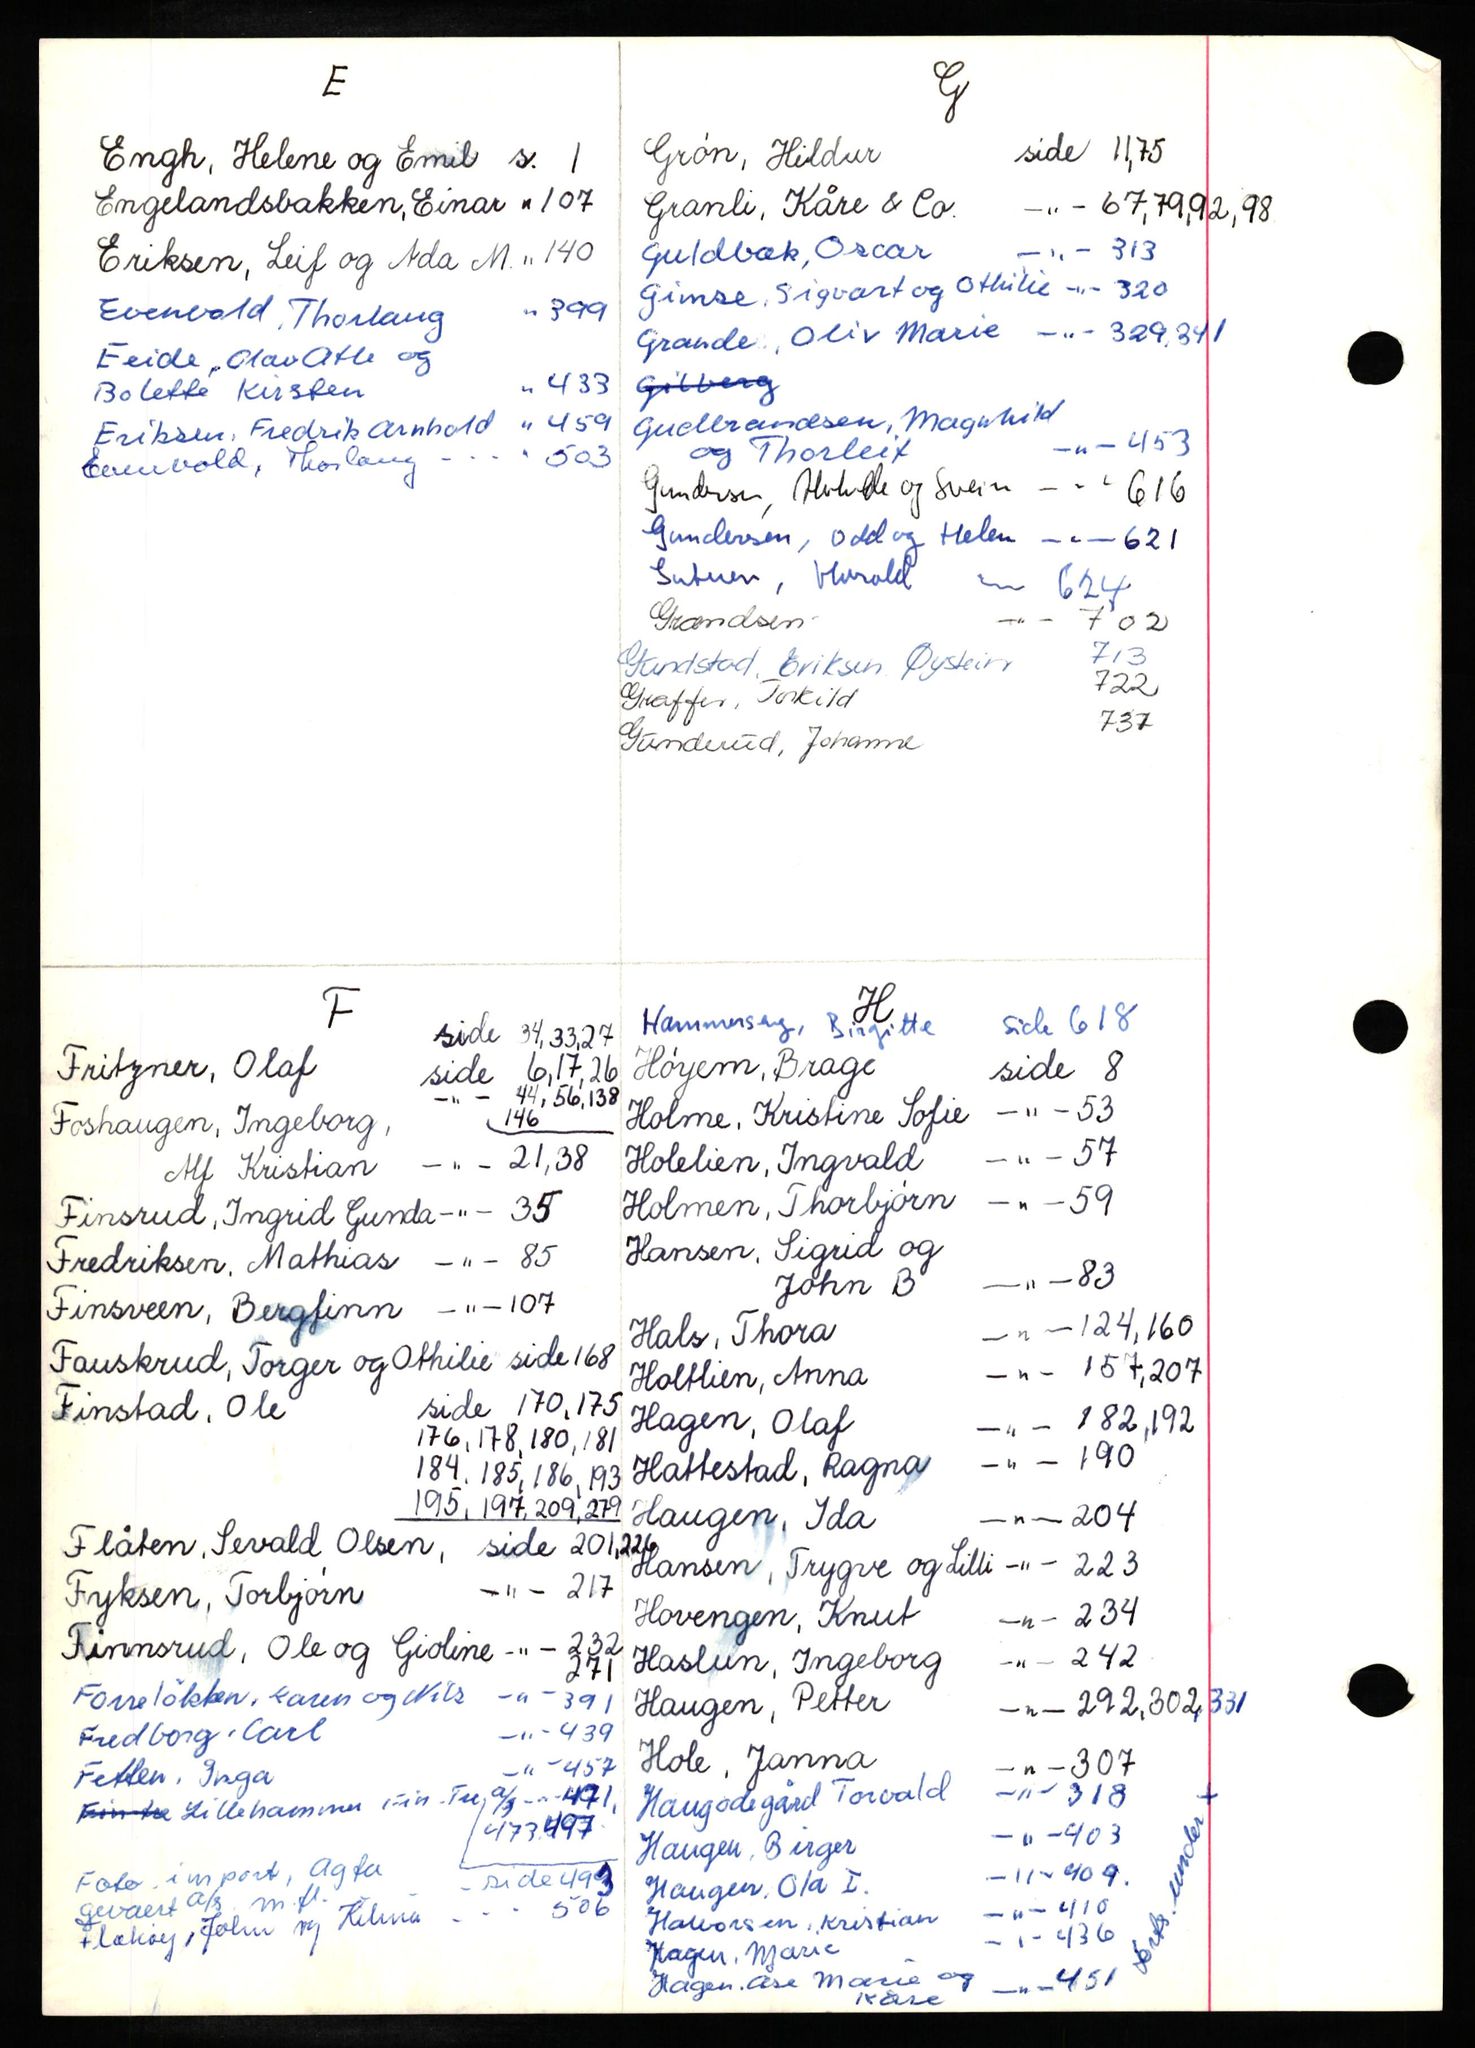 E
Engh, Helene og Emil s. 1
Engelandsbakken, Einar " 107
Eriksen, Leif og Ada M. " 140
Evenvold, Thorlaug " 399
Eeide, Olav Atle og
Bolette Kirsten " 433
Eriksen, Fredrik Arnhold " 459
Evenvold, Thorlaug - - - " 503
G
Grön, Hildur side 11,75
Granli, Kåre & Co. -"- 67,79,92,98
Guldbæk, Oscar -"- 313
Gimse, Sigvart og Othilie -"- 320
Grande, Oliv Marie -"- 329,341
Gilberg
Gudbrandsen, Magnhild
og Thorleif -"- 453
Gundersen, og Svein - " - 616
Gundersen, Odd og Helen -"- 621
Harald 624
Grandsen -"- 702
Eriksen Øystein 713
Graffer, Torkild 722
Gunderud, Johanne 737
F
side 34,33,27
Fritzner, Olaf side 6,17,26
-"- 44,56,138
146
Foshaugen, Ingeborg,
Alf Kristian -"- 21,38
Finsrud, Ingrid Gunda -"- 35
Fredriksen, Mathias -"- 85
Finsveen, Bergfinn -"- 107
Fauskrud, Torger og Othilie side 168
Finstad, Ole side 170,175
176,178,180,181
184,185,186,193
195,197,209,279
Flåten, Sevald Olsen, side 201,226
Fyksen, Torbjörn -"- 217
Finnsrud, Ole og Gidline -"- 232
271
Forrelökken, Karen og Nils -"- 391
Fredborg, Carl -"- 439
Fetten, Inga -"- 457
Lillehammer A/S -"- 471,
473,497
Foto import, Agfa - side 493
gevaert A/S m.fl.
John og - - - 506
H
Hammerseng, Birgitte side 618
Höyem, Brage side 8
Holme, Kristine Sofie -"- 53
Holelien, Ingvald -"- 57
Holmen, Thorbjörn -"- 59
Hansen, Sigrid og
John B -"- 83
Hals, Thora -"- 124,160
Holtlien, Anna -"- 157,207
Hagen, Olaf -"- 182,192
Hattestad, Ragna -"- 190
Haugen, Ida -"- 204
Hansen, Trygve og Lilli -"- 223
Hovengen, Knut -"- 234
Haslun, Ingeborg -"- 242
Haugen, Petter -"- 292,302,331
Hole, Janna -"- 307
Haugodegård Torvald -"- 318
Haugen, Birger -"- 403
Haugen, Ola I. -"- 409.
Halvorsen, Kristian -"- 410
Hagen, Marie -"- 436
Hagen, Åse Marie og
Kåre -"- 451
forts. under +